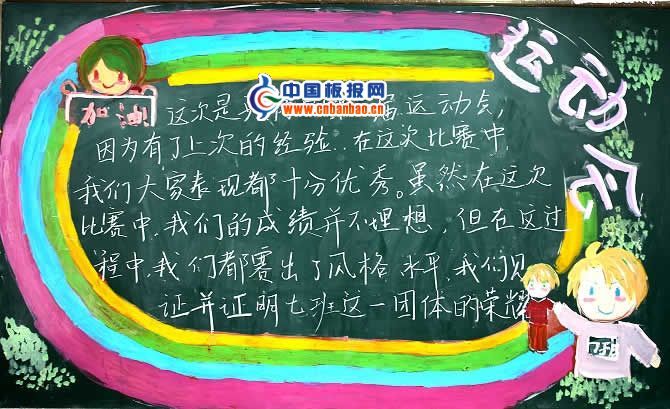 运动会
加油
中国板报网
www.cnbanbao.cn
这次是 运动会,
因为有了上次的经验,在这次比赛中
我们大家表现都十分优秀。虽然在这次
比赛中,我们的成绩并不理想,但在这过
程中,我们都赛出了风格 水平,我们见
证并证明七班这一团体的荣耀
7班